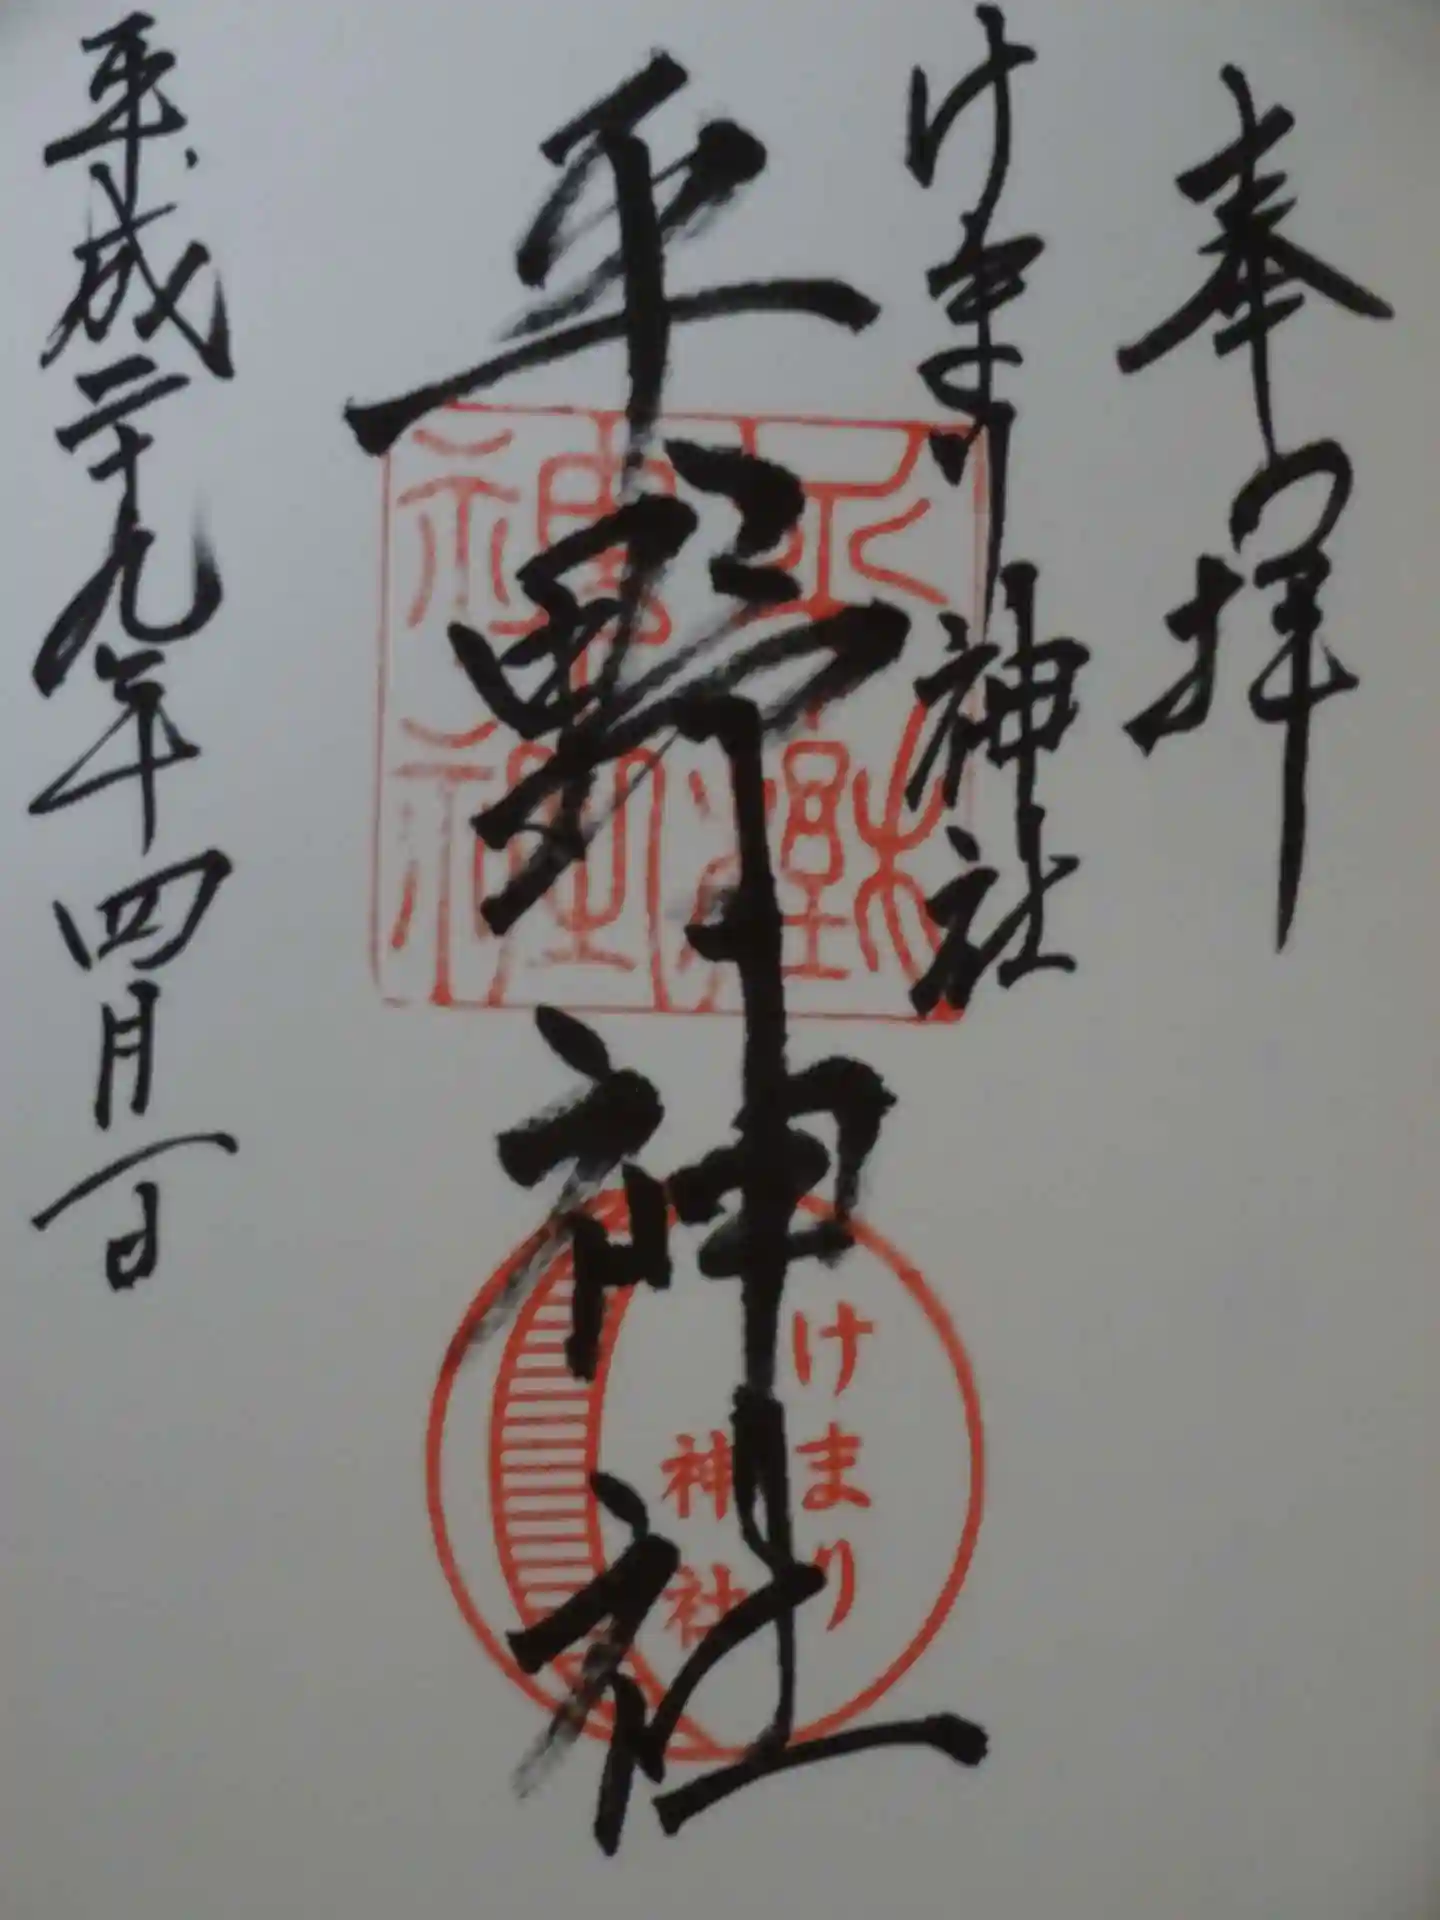 奉拝
けまり神社
平野神社
平成二十九年四月一日
けまり
神社